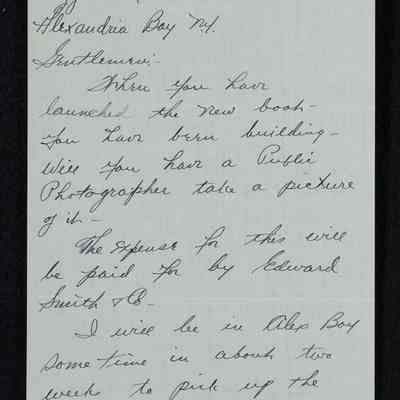 Alexandria Bay N.Y.
Gentlemen:-
When you have
launched the new boat -
you have been building -
Will you have a Public
Photographer take a picture
of it -
The expense for this will
be paid for by Edward
Smith & Co -
I will be in Alex Bay
some time in about two
weeks to pick up the